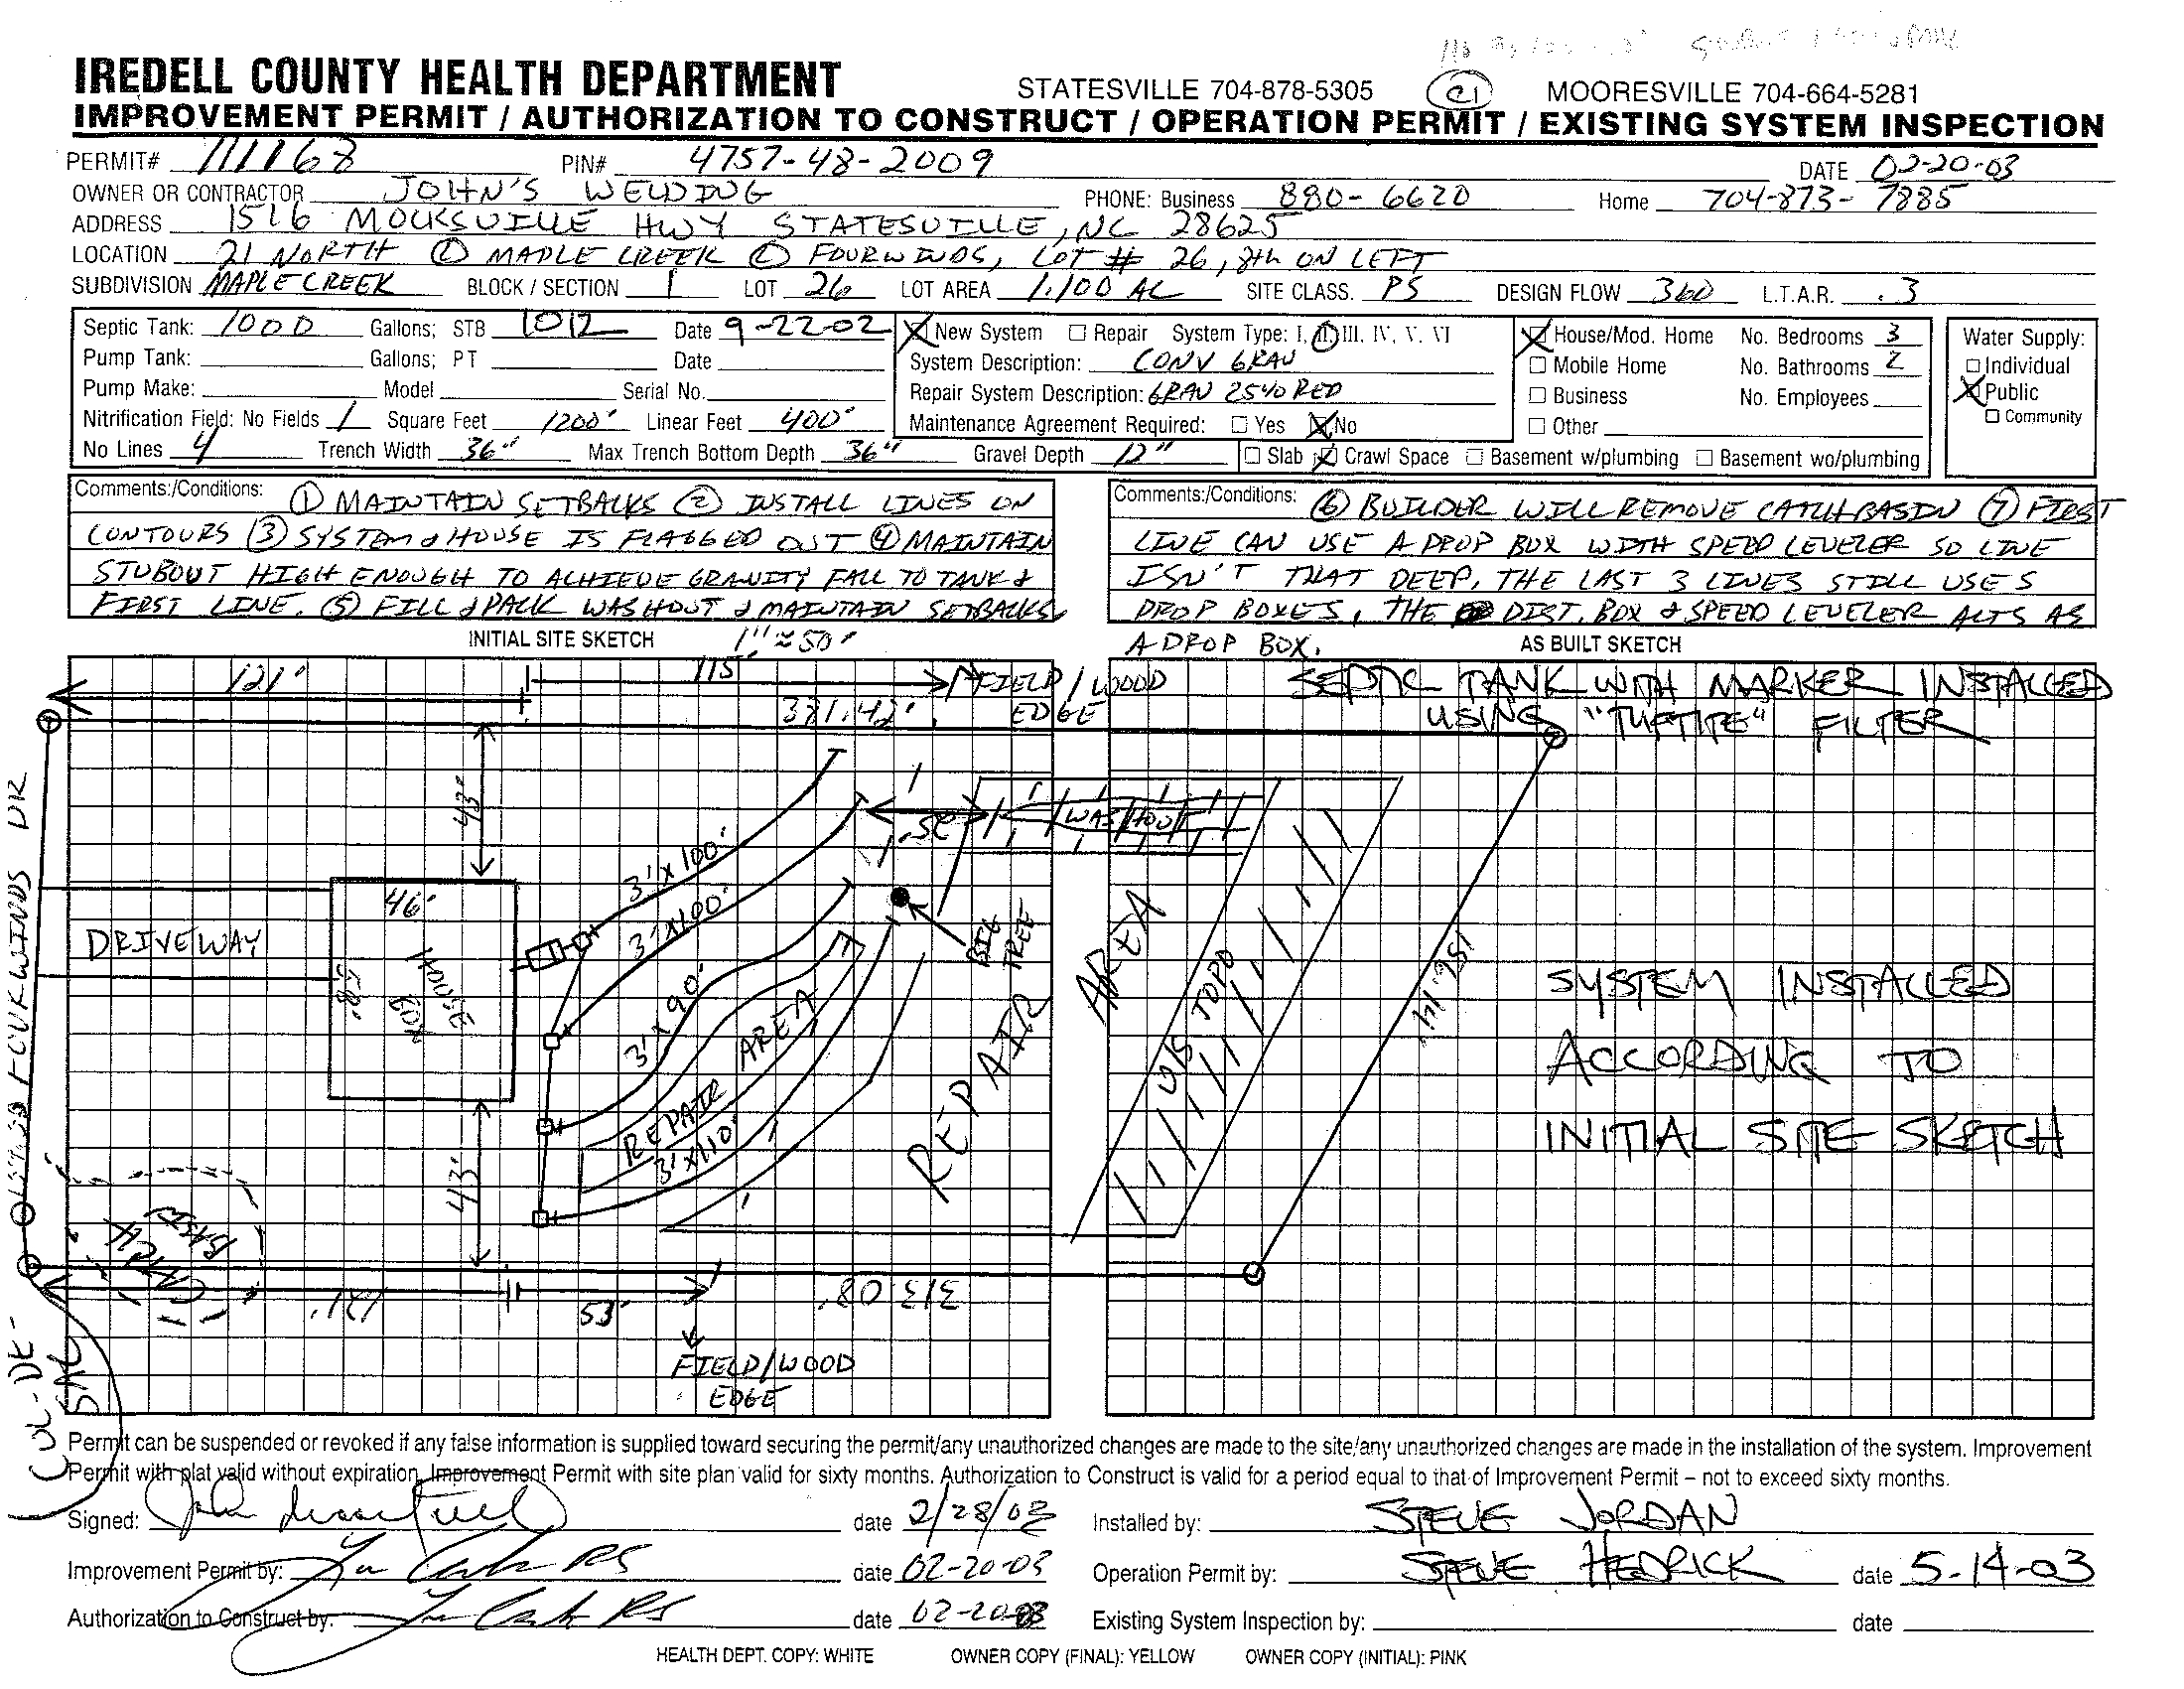 IREDELL COUNTY HEALTH DEPARTMENT STATESVILLE 704-878-5305 MOORESVILLE 704-664-5281
IMPROVEMENT PERMIT / AUTHORIZATION TO CONSTRUCT / OPERATION PERMIT / EXISTING SYSTEM INSPECTION
PERMIT# 111168 PIN# 4757-48-2009 DATE 02-20-03
OWNER OR CONTRACTOR JOHN'S WELDING PHONE: Business 880-6620 Home 704-873-7885
ADDRESS 1516 MOCKSVILLE HWY STATESVILLE, NC 28625
LOCATION 21 NORTH Ⓛ MAPLE CREEK Ⓛ FOURWINDS, LOT # 26, 8th ON LEFT
SUBDIVISION MAPLE CREEK BLOCK / SECTION 1 LOT 26 LOT AREA 1.100 AC SITE CLASS. PS DESIGN FLOW 360 L.T.A.R. .3
Septic Tank: 1000 Gallons; STB 1012 Date 9-22-02 New System Repair System Type: I, II, III, IV, V, VI House/Mod. Home No. Bedrooms 3 Water Supply:
Pump Tank: Gallons; PT Date System Description: CONV GRAV Mobile Home No. Bathrooms 2 Individual
Pump Make: Model Serial No. Repair System Description: GRAV 25% RED Business No. Employees Public
Nitrification Field: No Fields 1 Square Feet 1200' Linear Feet 400' Maintenance Agreement Required: Yes No Other Community
No Lines 4 Trench Width 36" Max Trench Bottom Depth 36" Gravel Depth 12" Slab Crawl Space Basement w/plumbing Basement wo/plumbing
Comments:/Conditions: ① MAINTAIN SETBACKS ② INSTALL LINES ON
CONTOURS ③ SYSTEM & HOUSE IS FLAGGED OUT ④ MAINTAIN
STUBOUT HIGH ENOUGH TO ACHIEVE GRAVITY FALL TO TANK &
FIRST LINE. ⑤ FILL & PACK WASHOUT & MAINTAIN SETBACKS
Comments:/Conditions: ⑥ BUILDER WILL REMOVE CATCH BASIN ⑦ FIRST
LINE CAN USE A DROP BOX WITH SPEED LEVELER SO LINE
ISN'T THAT DEEP, THE LAST 3 LINES STILL USES
DROP BOXES, THE DIST. BOX & SPEED LEVELER ACTS AS
A DROP BOX.
INITIAL SITE SKETCH 1" ≈ 50'
AS BUILT SKETCH
121' 115' FIELD/WOOD
EDGE
381.42'
SEPTIC TANK WITH MARKER INSTALLED
USING "TUFTITE" FILTER
43'
WASHOUT
50'
3'x100'
3'x100'
3'x90'
3'x110'
46'
58'
HOUSE
BOX
DRIVEWAY
FOURWINDS DR
BIG
TREE
REPAIR AREA
REPAIR AREA
GIS TOPO
151.14'
SYSTEM INSTALLED
ACCORDING TO
INITIAL SITE SKETCH
43'
CATCH
BASIN
121' 53' 313.08'
FIELD/WOOD
EDGE
CUL-DE-
SAC
Permit can be suspended or revoked if any false information is supplied toward securing the permit/any unauthorized changes are made to the site/any unauthorized changes are made in the installation of the system. Improvement
Permit with plat valid without expiration, Improvement Permit with site plan valid for sixty months. Authorization to Construct is valid for a period equal to that of Improvement Permit – not to exceed sixty months.
Signed: date 2/28/03 Installed by: STEVE JORDAN
Improvement Permit by: RS date 02-20-03 Operation Permit by: STEVE HEDRICK date 5-14-03
Authorization to Construct by: RS date 02-20-03 Existing System Inspection by: date
HEALTH DEPT. COPY: WHITE OWNER COPY (FINAL): YELLOW OWNER COPY (INITIAL): PINK